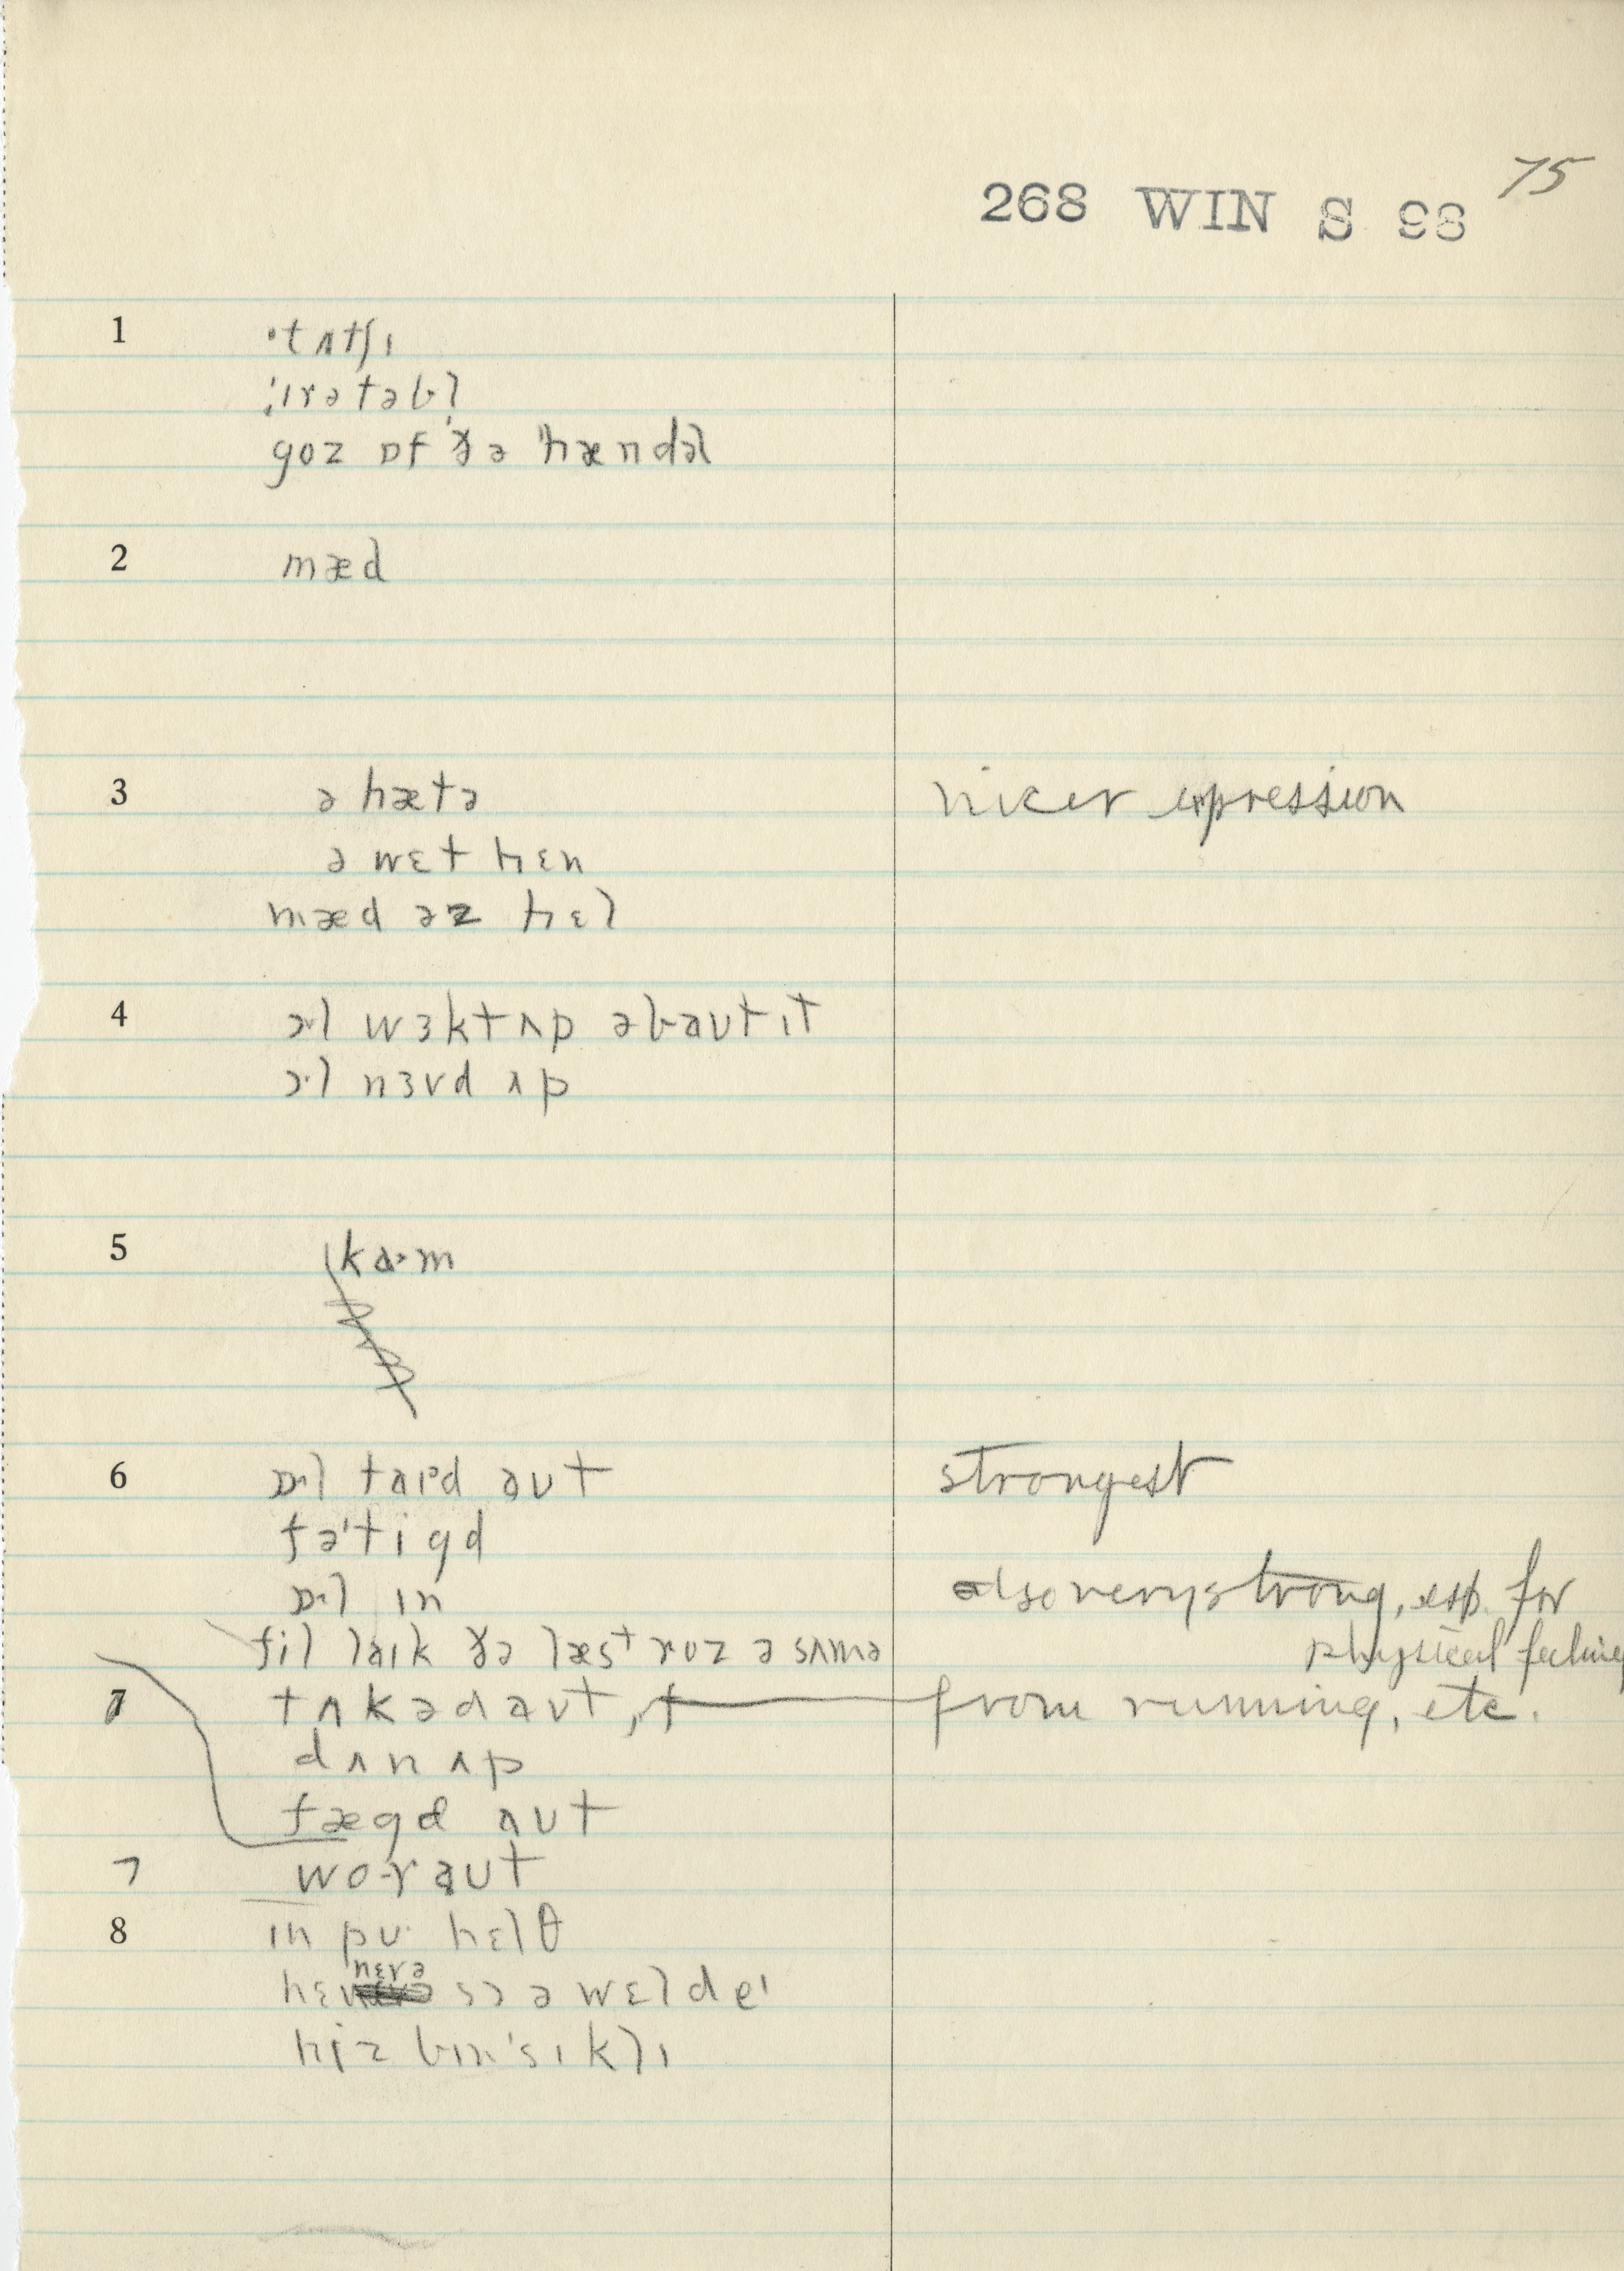 75
268 WIN S 98
1 ˈtʌtʃɪ
ˈɪrətəbl̩
goz ɒf ðə ˈhændəl
2 mæd
3 ə hætə nicer expression
ə wɛt hɛn
mæd əz hɛl
4 ɔ·l wɜktʌp əbaʊt ɪt
ɔ·l nɜvd ʌp
5 ka·m
6 ɒ·l taɪəd aʊt strongest
fəˈtigd
ɒ·l ɪn also very strong, esp. for
fil laɪk ðə læst roz ə sʌmə physical feeling
7 tʌkəd aʊt, from running, etc.
dʌn ʌp
fægd aʊt
7 wo·r aʊt
8 ɪn pʊ· hɛlθ
nɛvə
hɛz sɔ ə wɛl de
hiz bɪn ˈsɪklɪ